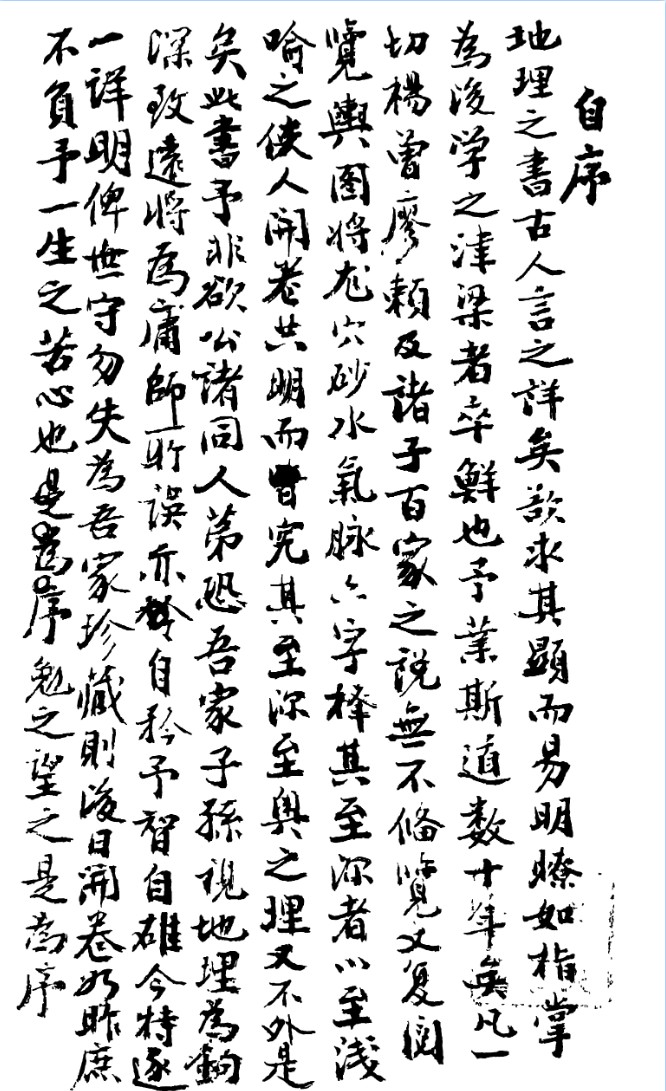 自序
地理之書古人言之詳矣欲求其顯而易明瞭如指掌
為後学之津梁者卒鮮也予業斯道数十年矣凡一
切楊曾廖賴及諸子百家之說無不俻覽又复閱
覽輿圖將龙穴砂水氣脉六字择其至深者以至淺
喻之使人開卷共明而曾究其至深至奥之理又不外是
矣此書予非欲公諸同人第恐吾家子孫視地理為鉤
深致遠將為庸師所誤亦自矜予智自雄今特逐
一詳明俾世守勿失為吾家珍藏則後日開卷如昨庶
不負予一生之苦心也是為序勉之望之是為序